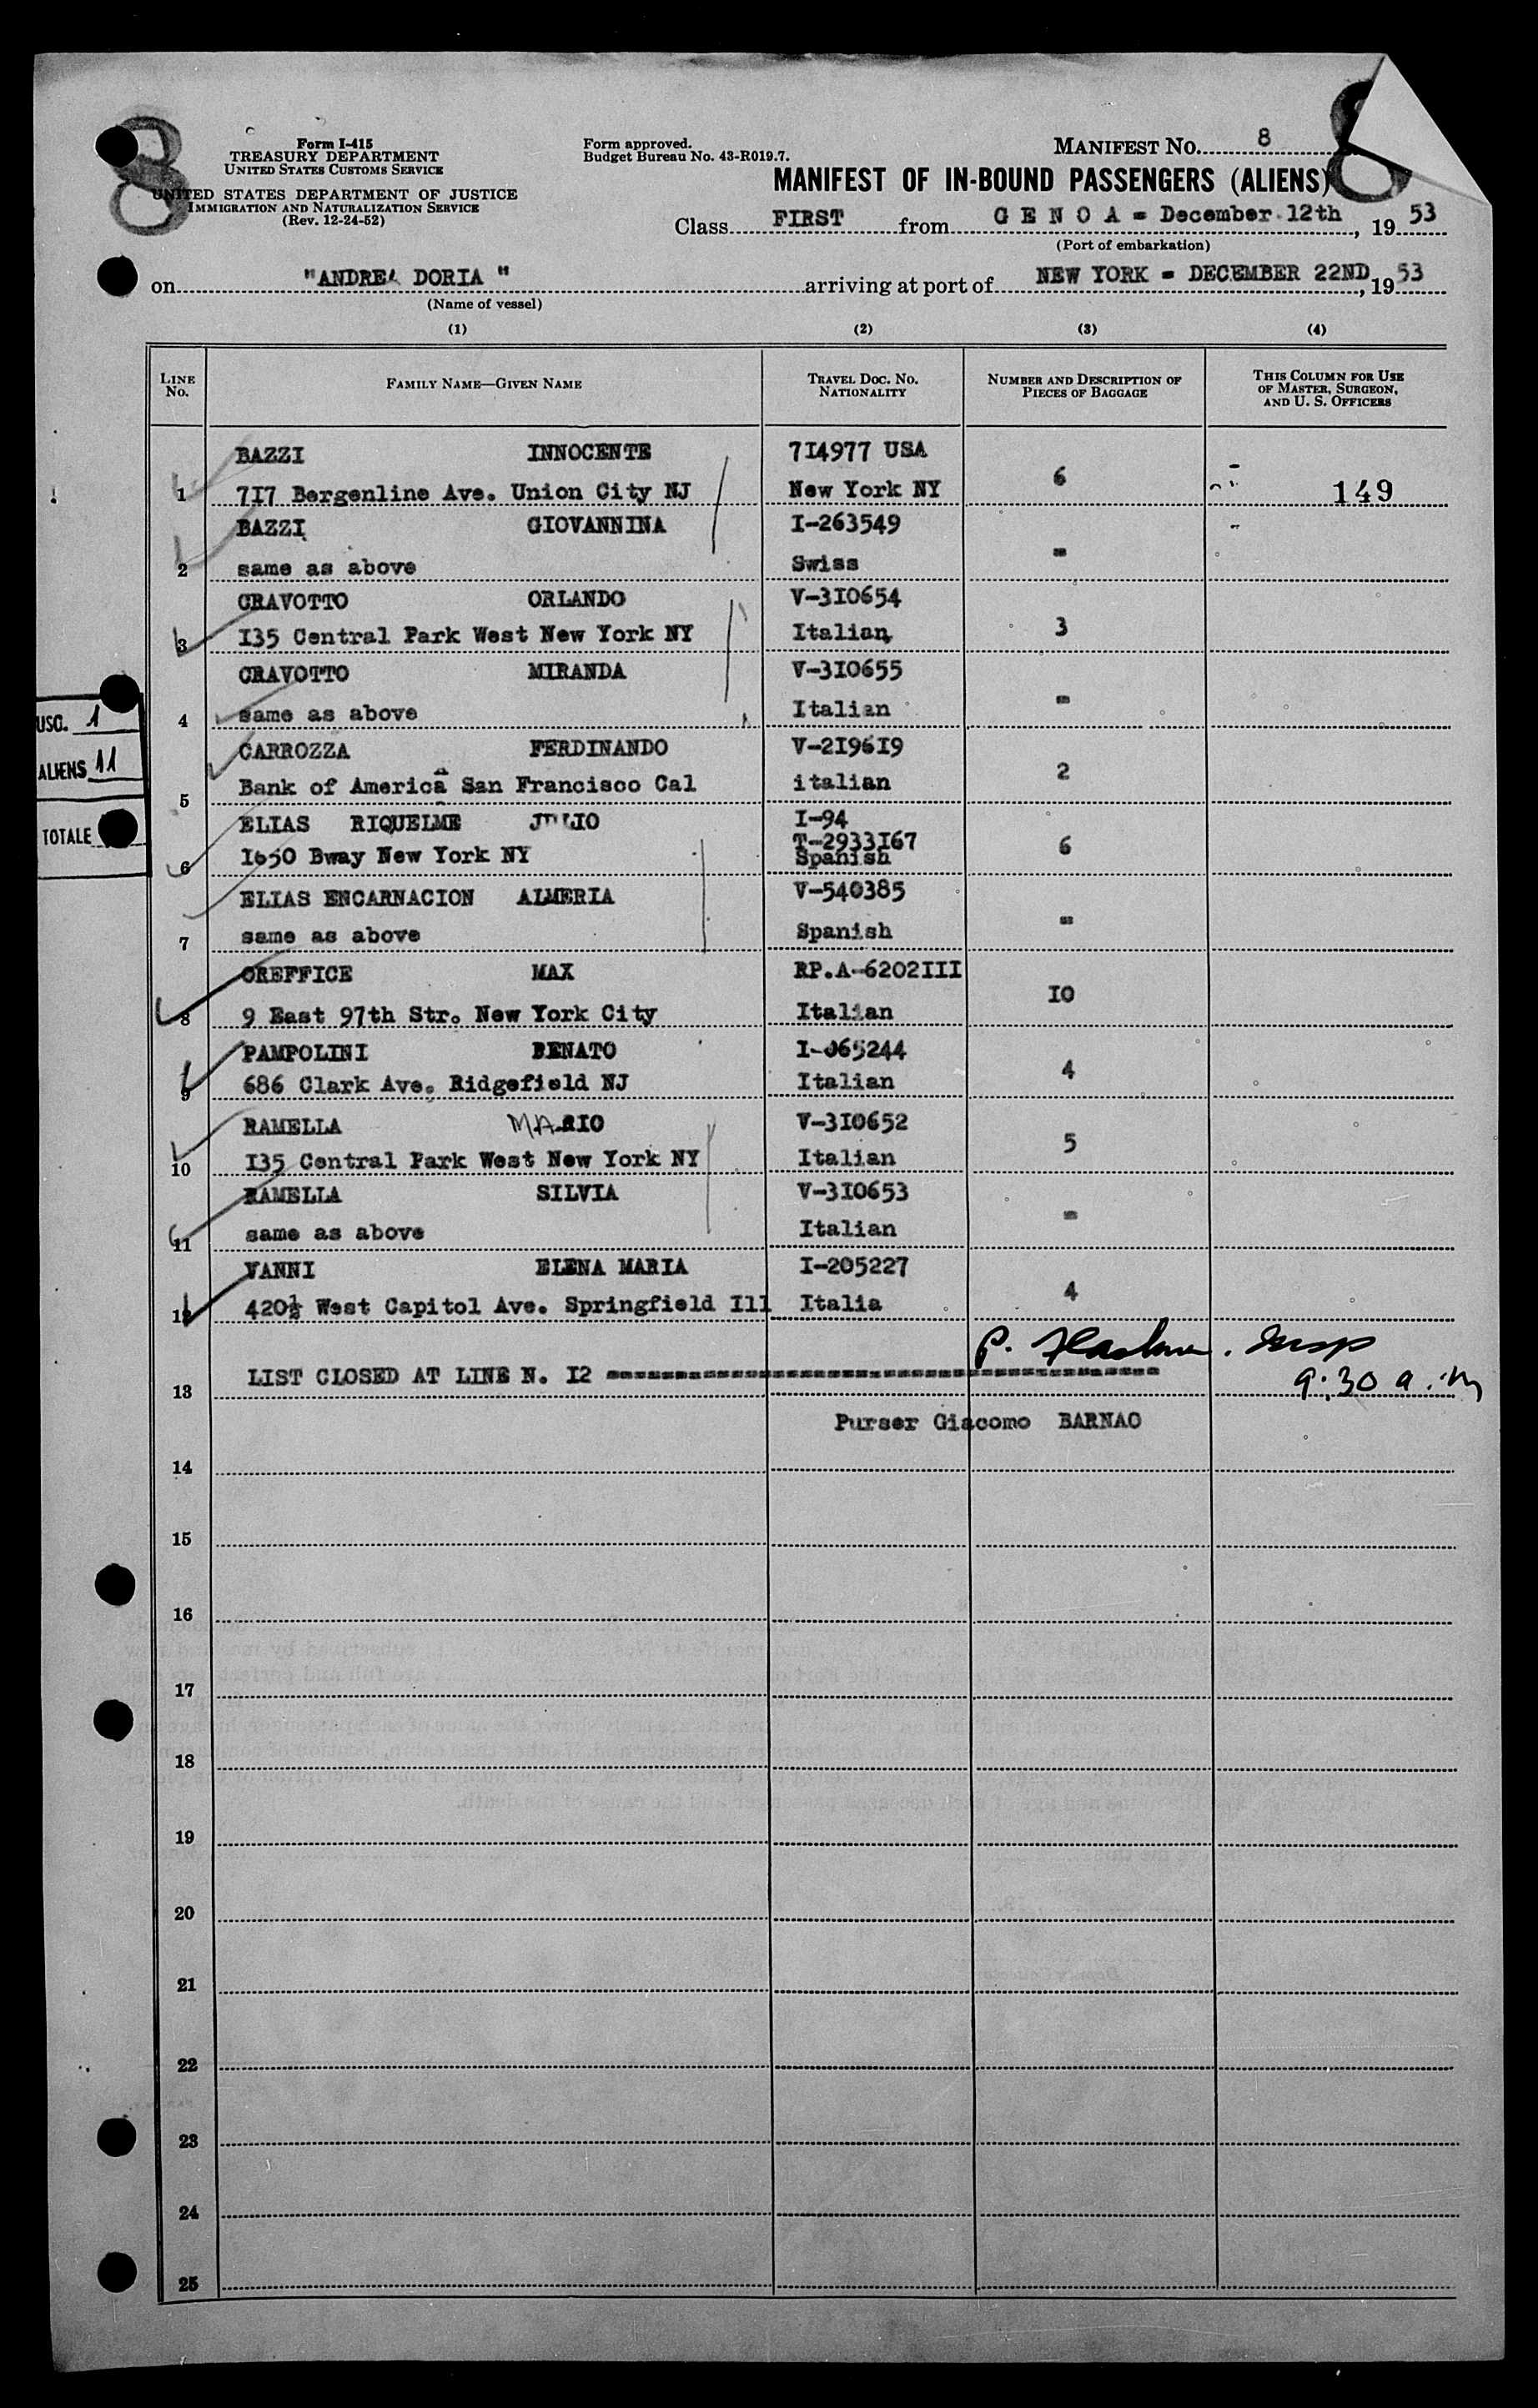 8
8
Form I-415
TREASURY DEPARTMENT
UNITED STATES CUSTOMS SERVICE
UNITED STATES DEPARTMENT OF JUSTICE
IMMIGRATION AND NATURALIZATION SERVICE
(Rev. 12-24-52)
Form approved.
Budget Bureau No. 43-R019.7.
MANIFEST NO. 8
MANIFEST OF IN-BOUND PASSENGERS (ALIENS)
Class FIRST from G E N O A = December 12th, 19 53
(Port of embarkation)
on "ANDREA DORIA " arriving at port of NEW YORK = DECEMBER 22ND, 19 53
(Name of vessel)
(1) (2) (3) (4)
LINE NO. FAMILY NAME—GIVEN NAME TRAVEL DOC. NO. NATIONALITY NUMBER AND DESCRIPTION OF PIECES OF BAGGAGE THIS COLUMN FOR USE OF MASTER, SURGEON, AND U. S. OFFICERS
BAZZI INNOCENTE 7I4977 USA
1 7I7 Bergenline Ave. Union City NJ New York NY 6 149
BAZZI GIOVANNINA I-263549
2 same as above Swiss =
CRAVOTTO ORLANDO V-3I0654
3 I35 Central Park West New York NY Italian 3
CRAVOTTO MIRANDA V-3I0655
4 same as above Italian =
CARROZZA FERDINANDO V-2I96I9
5 Bank of America San Francisco Cal italian 2
ELIAS RIQUELME JULIO I-94
T-2933I67
6 I650 Bway New York NY Spanish 6
ELIAS ENCARNACION ALMERIA V-540385
7 same as above Spanish =
OREFFICE MAX RP.A-6202III
8 9 East 97th Str. New York City Italian IO
PAMPOLINI RENATO I-065244
9 686 Clark Ave. Ridgefield NJ Italian 4
RAMELLA MARIO V-3I0652
10 I35 Central Park West New York NY Italian 5
RAMELLA SILVIA V-3I0653
11 same as above Italian =
VANNI ELENA MARIA I-205227
12 420½ West Capitol Ave. Springfield Ill Italia 4
13 LIST CLOSED AT LINE N. I2 ========================================
9:30 a.m
Purser Giacomo BARNAO
14
15
16
17
18
19
20
21
22
23
24
25
USC. 1
ALIENS 11
TOTALE